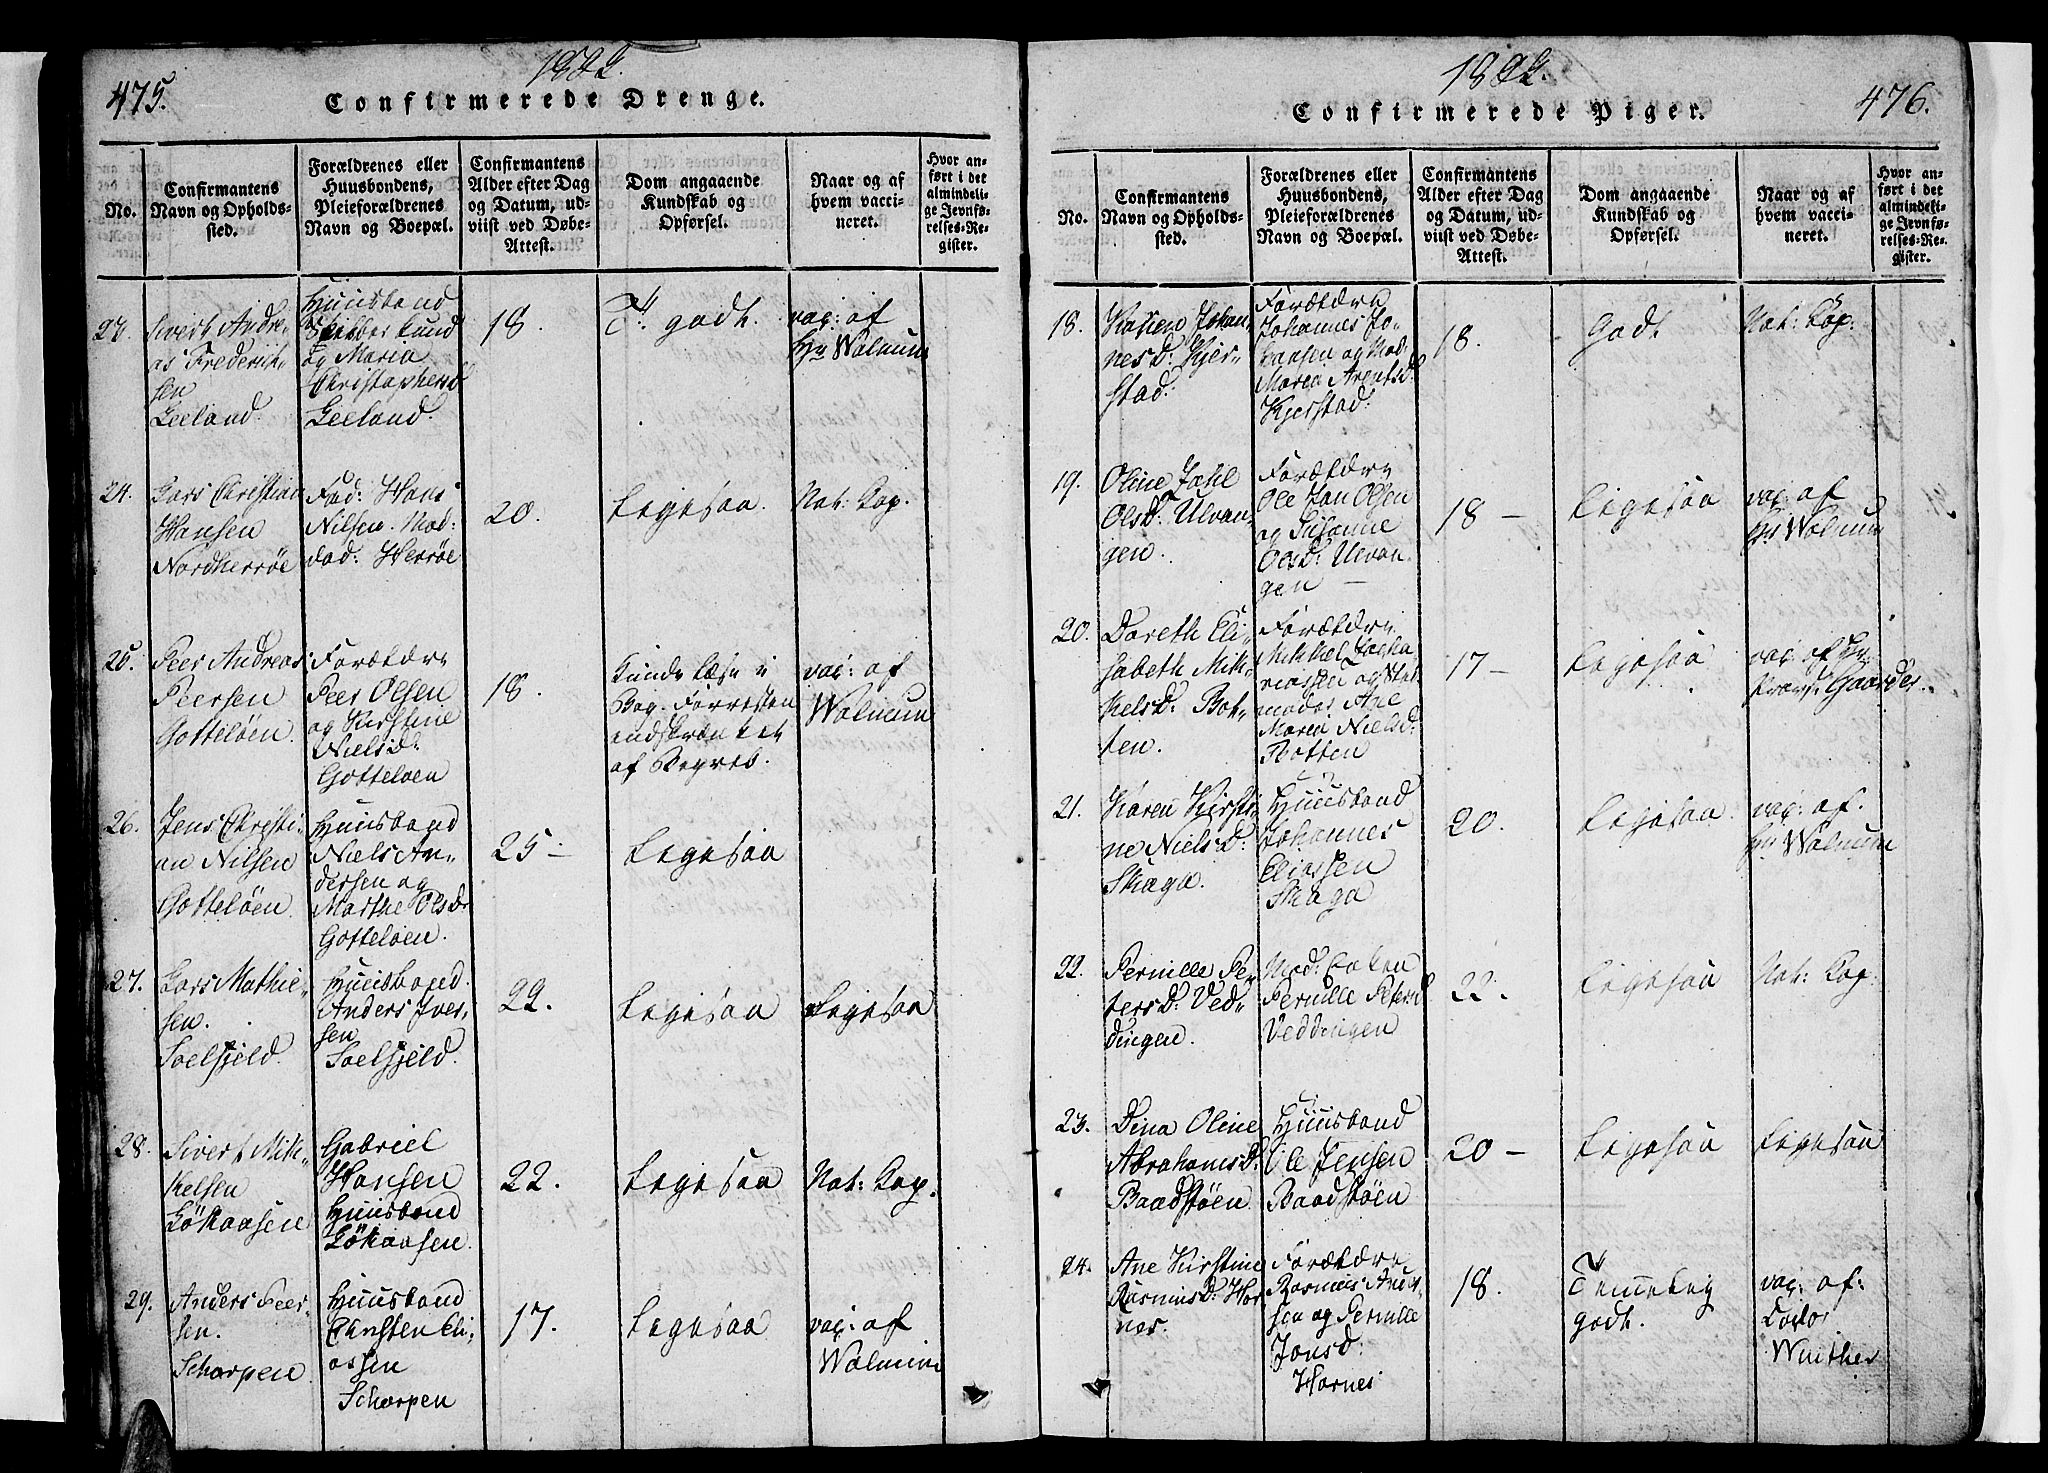 475.
1822.
Confirmerede Drenge.
No.
Confirmantens
Navn og Opholds-
sted.
Forældrenes eller
Huusbondens,
Pleieforældrenes
Navn og Boepæl.
Confirmantens
Alder efter Dag
og Datum, ud-
viist ved Døbe-
Attest.
Dom angaaende
Kundskab og
Opførsel.
Naar og af
hvem vacci-
neret.
Hvor an-
ført i det
almindeli-
ge Jevnfø-
relses-Re-
gister.
23.
Sivert Andre-
as Frederich-
sen
Geeland.
Huusbond
og Maria
Christophersd
Geeland.
18.
T. godt.
vac: af
Hr Walnum
24.
Lars Christian
Hansen
Nordherrøe
Fad: Hans
Nilsen. Mod:
død: Herrøe
20.
Ligesaa.
Nat: Kop.
25.
Peer Andreas
Peersen
Gotteløen.
Forældre
Peer Olsen
og Kirstine
Nielsd:
Gotteløen
18.
Kunde læse i
Bog. Forresten
indskrænket
af Begreb.
vac: af
Walnum
26.
Jens Christi-
an Nilsen
Gotteløen.
Huusbond
Niels An-
dersen og
Marthe Olsd:
Gotteløen.
25 -
Ligesaa
27.
Lars Mathie-
sen.
Soelfjeld.
Huusbond.
Anders Iver-
sen
Soelfjeld.
22.
Ligesaa
Ligesaa
28.
Sivert Mik-
kelsen
Løkaasen
Gabriel
Hansen
Huusbond
Løkaasen.
22.
Ligesaa
Nat: Kop.
29.
Anders Peer-
sen.
Scharpen.
Huusbond
Carsten Eli-
assen
Scharpen
17.
Ligesaa
vac: af
Walnum
1822.
476.
Confirmerede Piger.
No.
Confirmantens
Navn og Opholds-
sted.
Forældrenes eller
Huusbondens,
Pleieforældrenes
Navn og Boepæl.
Confirmantens
Alder efter Dag
og Datum, ud-
viist ved Døbe-
Attest.
Dom angaaende
Kundskab og
Opførsel.
Naar og af
hvem vacci-
neret.
Hvor an-
ført i det
almindeli-
ge Jevnfø-
relses-Re-
gister.
18.
Karen Johan-
nesd: Kjer-
stad.
Forældre
Johannes Jo-
hansen og Mod
Maren Arentsd:
Kjerstad.
18.
Godt
Nat: Kop:
19.
Oline
Olsd: Ulvan-
gen.
Forældre
Ole Jan Olsen
og Susanne
Olsd: Ulvan-
gen —
18 —
Ligesaa
vac: af
Hr Walnum
20.
Doreth Eli-
sabeth Mik-
kelsd: Bot-
ten.
Forældre
Mikkel Zacha-
riassen og Sted
moder Ane
Maria Nielsd:
Botten
17 —
Ligesaa
vac: af Hr
Provst Gaarder.
21.
Karen Kirsti-
ne Nielsd:
Skaga.
Huusbond
Johannes
Eliassen
Skaga
20.
Ligesaa.
vac: af.
Hr Walnum
22.
Pernille Pe-
tersd: Ved-
dingen.
Mod: Enken
Pernille Petersd
Veddingen
22.
Ligesaa
Nat: Kop:
23.
Dina Oline
Abrahamsd:
Baadstøen.
Huusbond
Ole Jensen
Baadstøen
20 —
Ligesaa
Ligesaa
24.
Ane Kirstine
Rasmusd: Hor-
nes.
Forældre
Rasmus Ander-
sen og Pernille
Jonsd:
Hornes
18.
Temmelig
godt.
vac: af:
Doctor
Winther